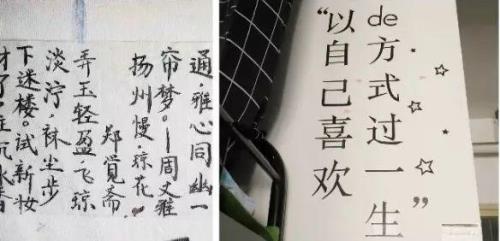 通，雅心同幽一
帘梦。—周文雅
扬州慢·琼花
郑觉斋
弄玉轻盈飞琼
淡泞，袜尘步
下迷楼。试新妆
才了
“以自己喜欢
de方式过一生”